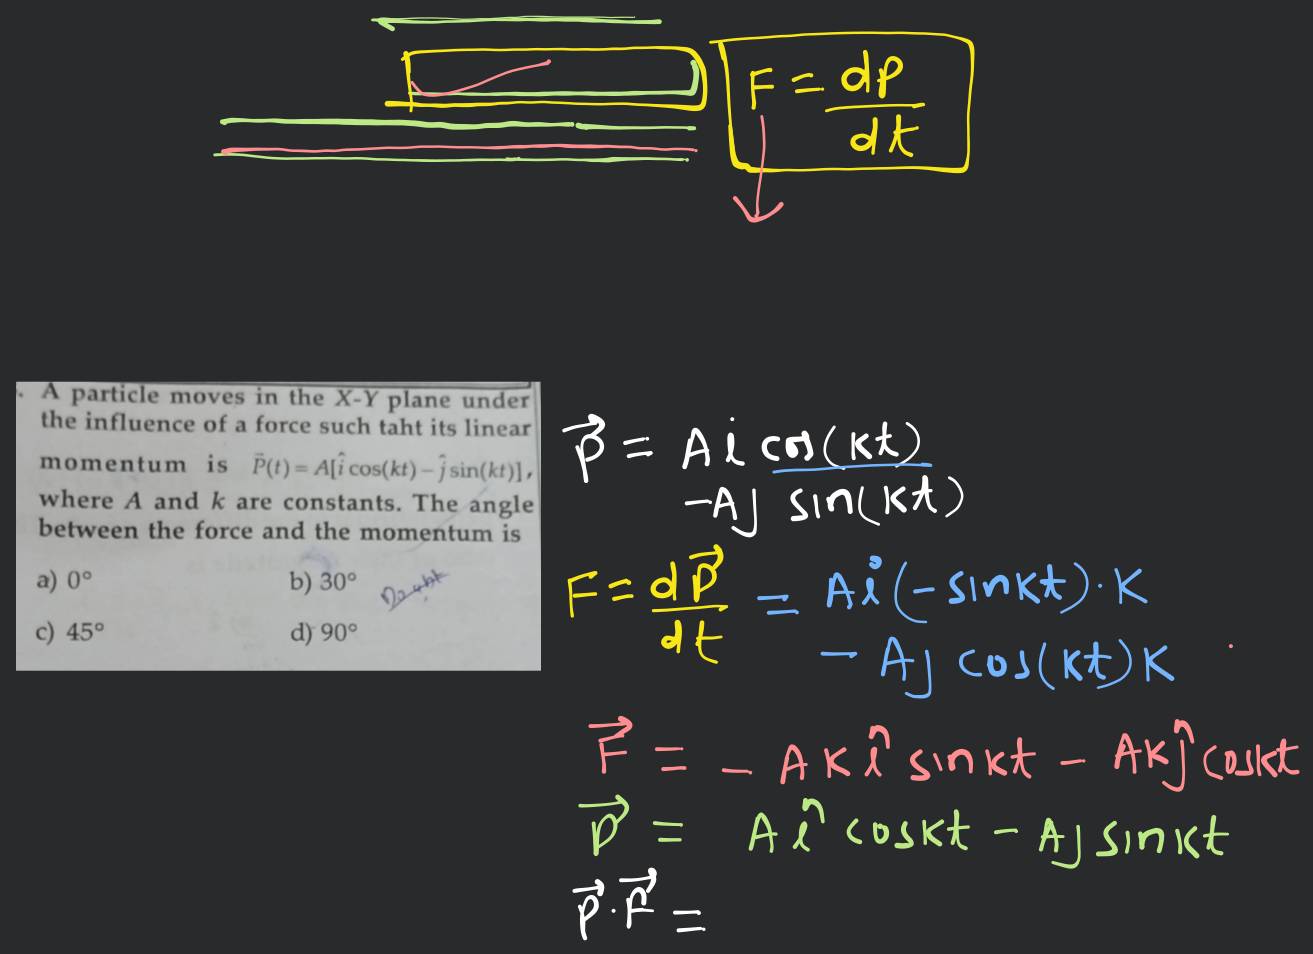 F = dp/dt
. A particle moves in the X-Y plane under
the influence of a force such taht its linear
momentum is P⃗(t) = A[î cos(kt) – ĵ sin(kt)],
where A and k are constants. The angle
between the force and the momentum is
a) 0° b) 30°
Doubt
c) 45° d) 90°
P⃗ = A i cos(kt)
-Aj sin(kt)
F = dP⃗/dt = Ai(-sinkt)·K
- Aj cos(kt)K
F⃗ = - AK î sinkt - AK ĵ coskt
P⃗ = A î coskt - Aj sinkt
P⃗·F⃗ =